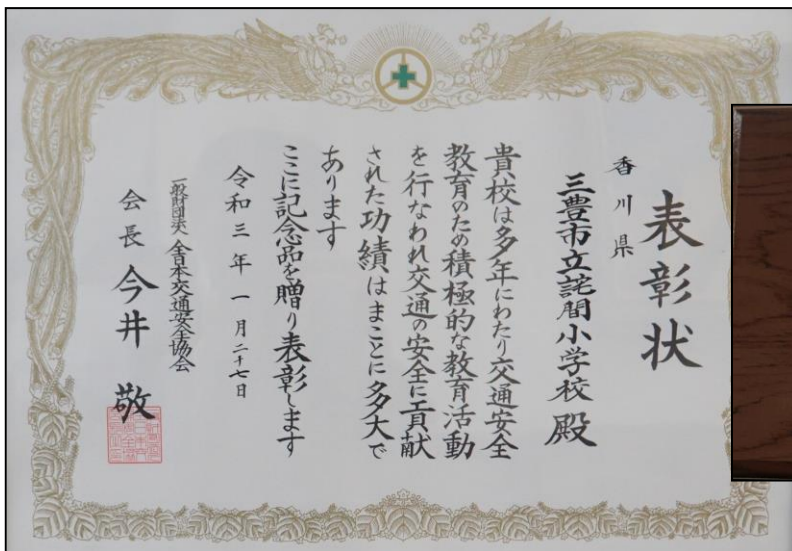 表彰状
香川県
三豊市立詫間小学校殿
貴校は多年にわたり交通安全
教育のため積極的な教育活動
を行なわれ交通の安全に貢献
された功績はまことに多大で
あります
ここに記念品を贈り表彰します
令和三年一月二十七日
一般財団法人 全日本交通安全協会
会長 今井 敬